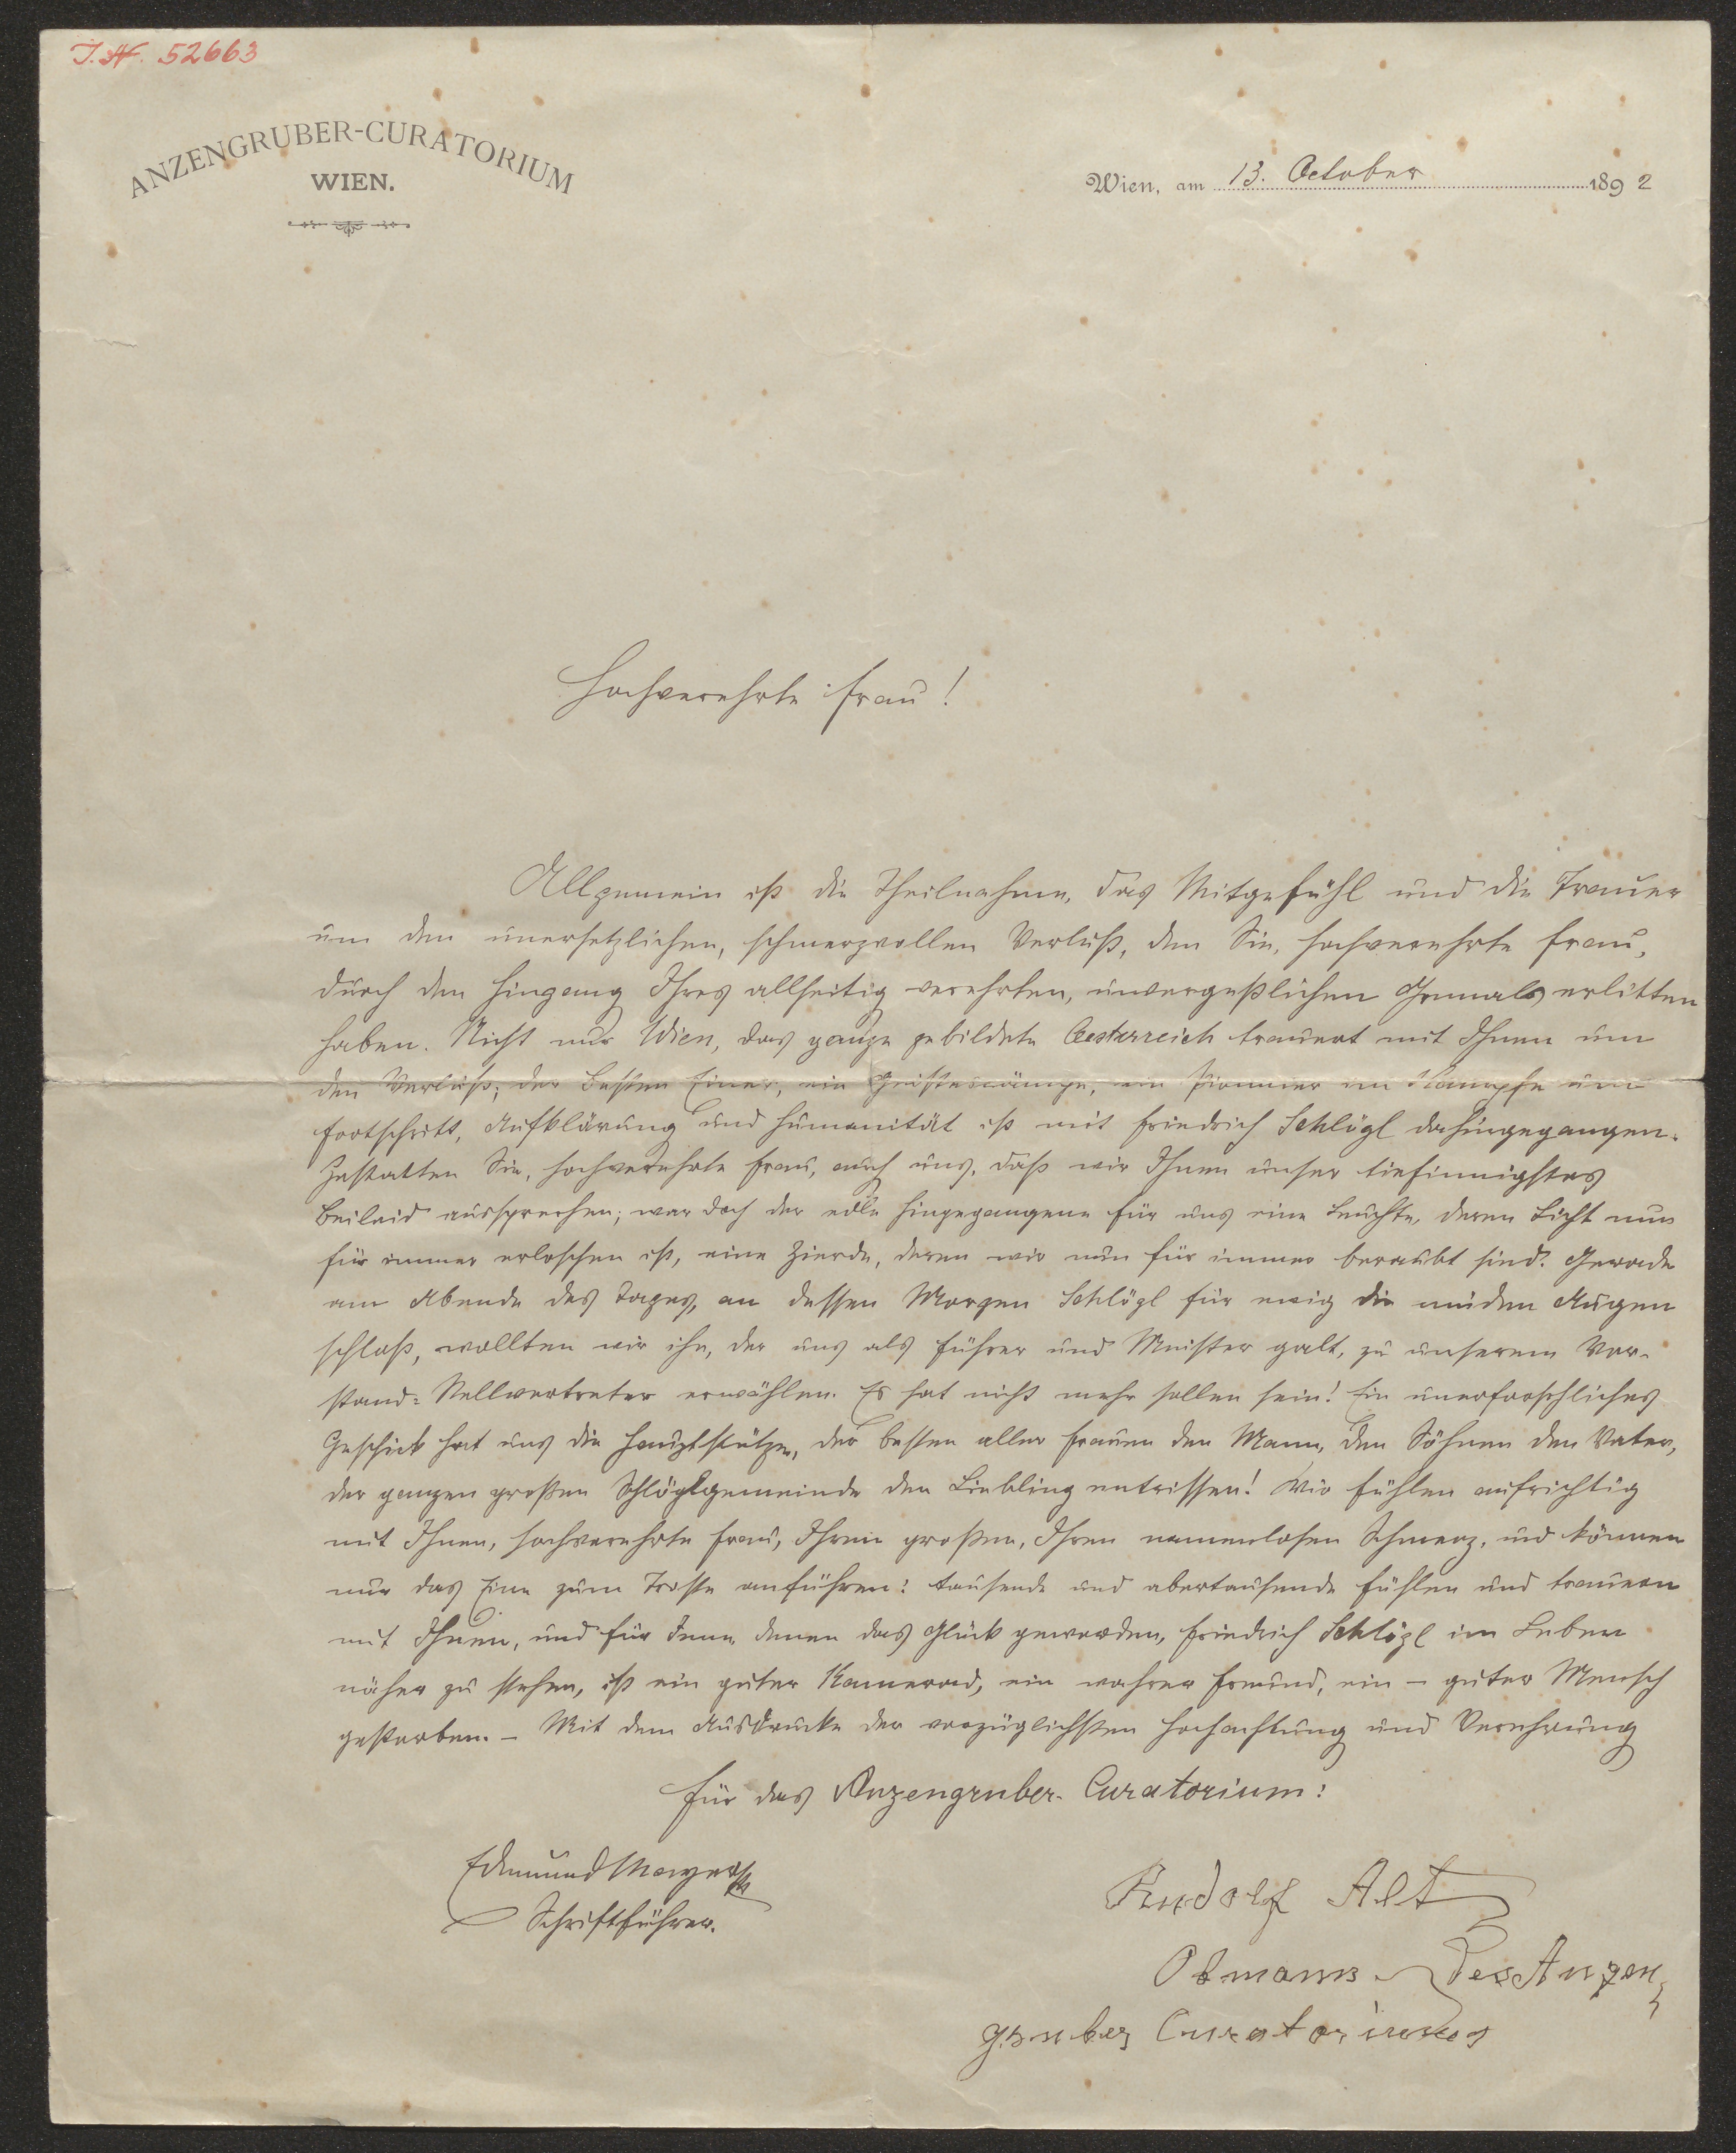 J.N. 52663
ANZENGRUBER-CURATORIUM
WIEN.
Wien, am 13. October 1892
Hochverehrte Frau!
Allgemein ist die Theilnahme, das Mitgefühl und die Trauer
um den unersetzlichen, schmerzvollen Verlust, den Sie, hochverehrte Frau,
durch den Hingang Ihres allseitig verehrten, unvergeßlichen Gemals erlitten
haben. Nicht nur Wien, das ganze gebildete Oesterreich trauert mit Ihnen um
den Verlust; der Besten Einer, ein Geisteskämpe, ein Pionnier im Kampfe um
Fortschritt, Aufklärung und Humanität ist mit Friedrich Schlögl dahingegangen.
Gestatten Sie, hochverehrte Frau, auch uns, daß wir Ihnen unser tiefinnigstes
Beileid aussprechen; war doch der edle Hingegangene für uns eine Leuchte, deren Licht nun
für immer erloschen ist, eine Zierde, deren wir nun für immer beraubt sind. Gerade
am Abende des Tages, an dessen Morgen Schlögl für ewig die müden Augen
schloß, wollten wir ihn, der uns als Führer und Meister galt, zu unserem Vor-
stand-Stellvertreter erwählen. Es hat nicht mehr sollen sein! Ein unerforschliches
Geschick hat uns die Hauptstütze, der besten aller Frauen den Mann, den Söhnen den Vater,
der ganzen großen Schlöglgemeinde den Liebling entrissen! Wir fühlen aufrichtig
mit Ihnen, hochverehrte Frau, Ihren großen, Ihren namenlosen Schmerz, und können
nur das Eine zum Troste anführen: tausende und abertausende fühlen und trauern
mit Ihnen, und für Jene, denen das Glück geworden, Friedrich Schlögl im Leben
näher zu stehen, ist ein guter Kamerad, ein wahrer Freund, ein – guter Mensch
gestorben. – Mit dem Ausdrucke der vorzüglichsten Hochachtung und Verehrung
für das Anzengruber-Curatorium:
Edmund Mayer
Schriftführer.
Rudolf Alt
Obmann des Anzen
gruber Curatoriums